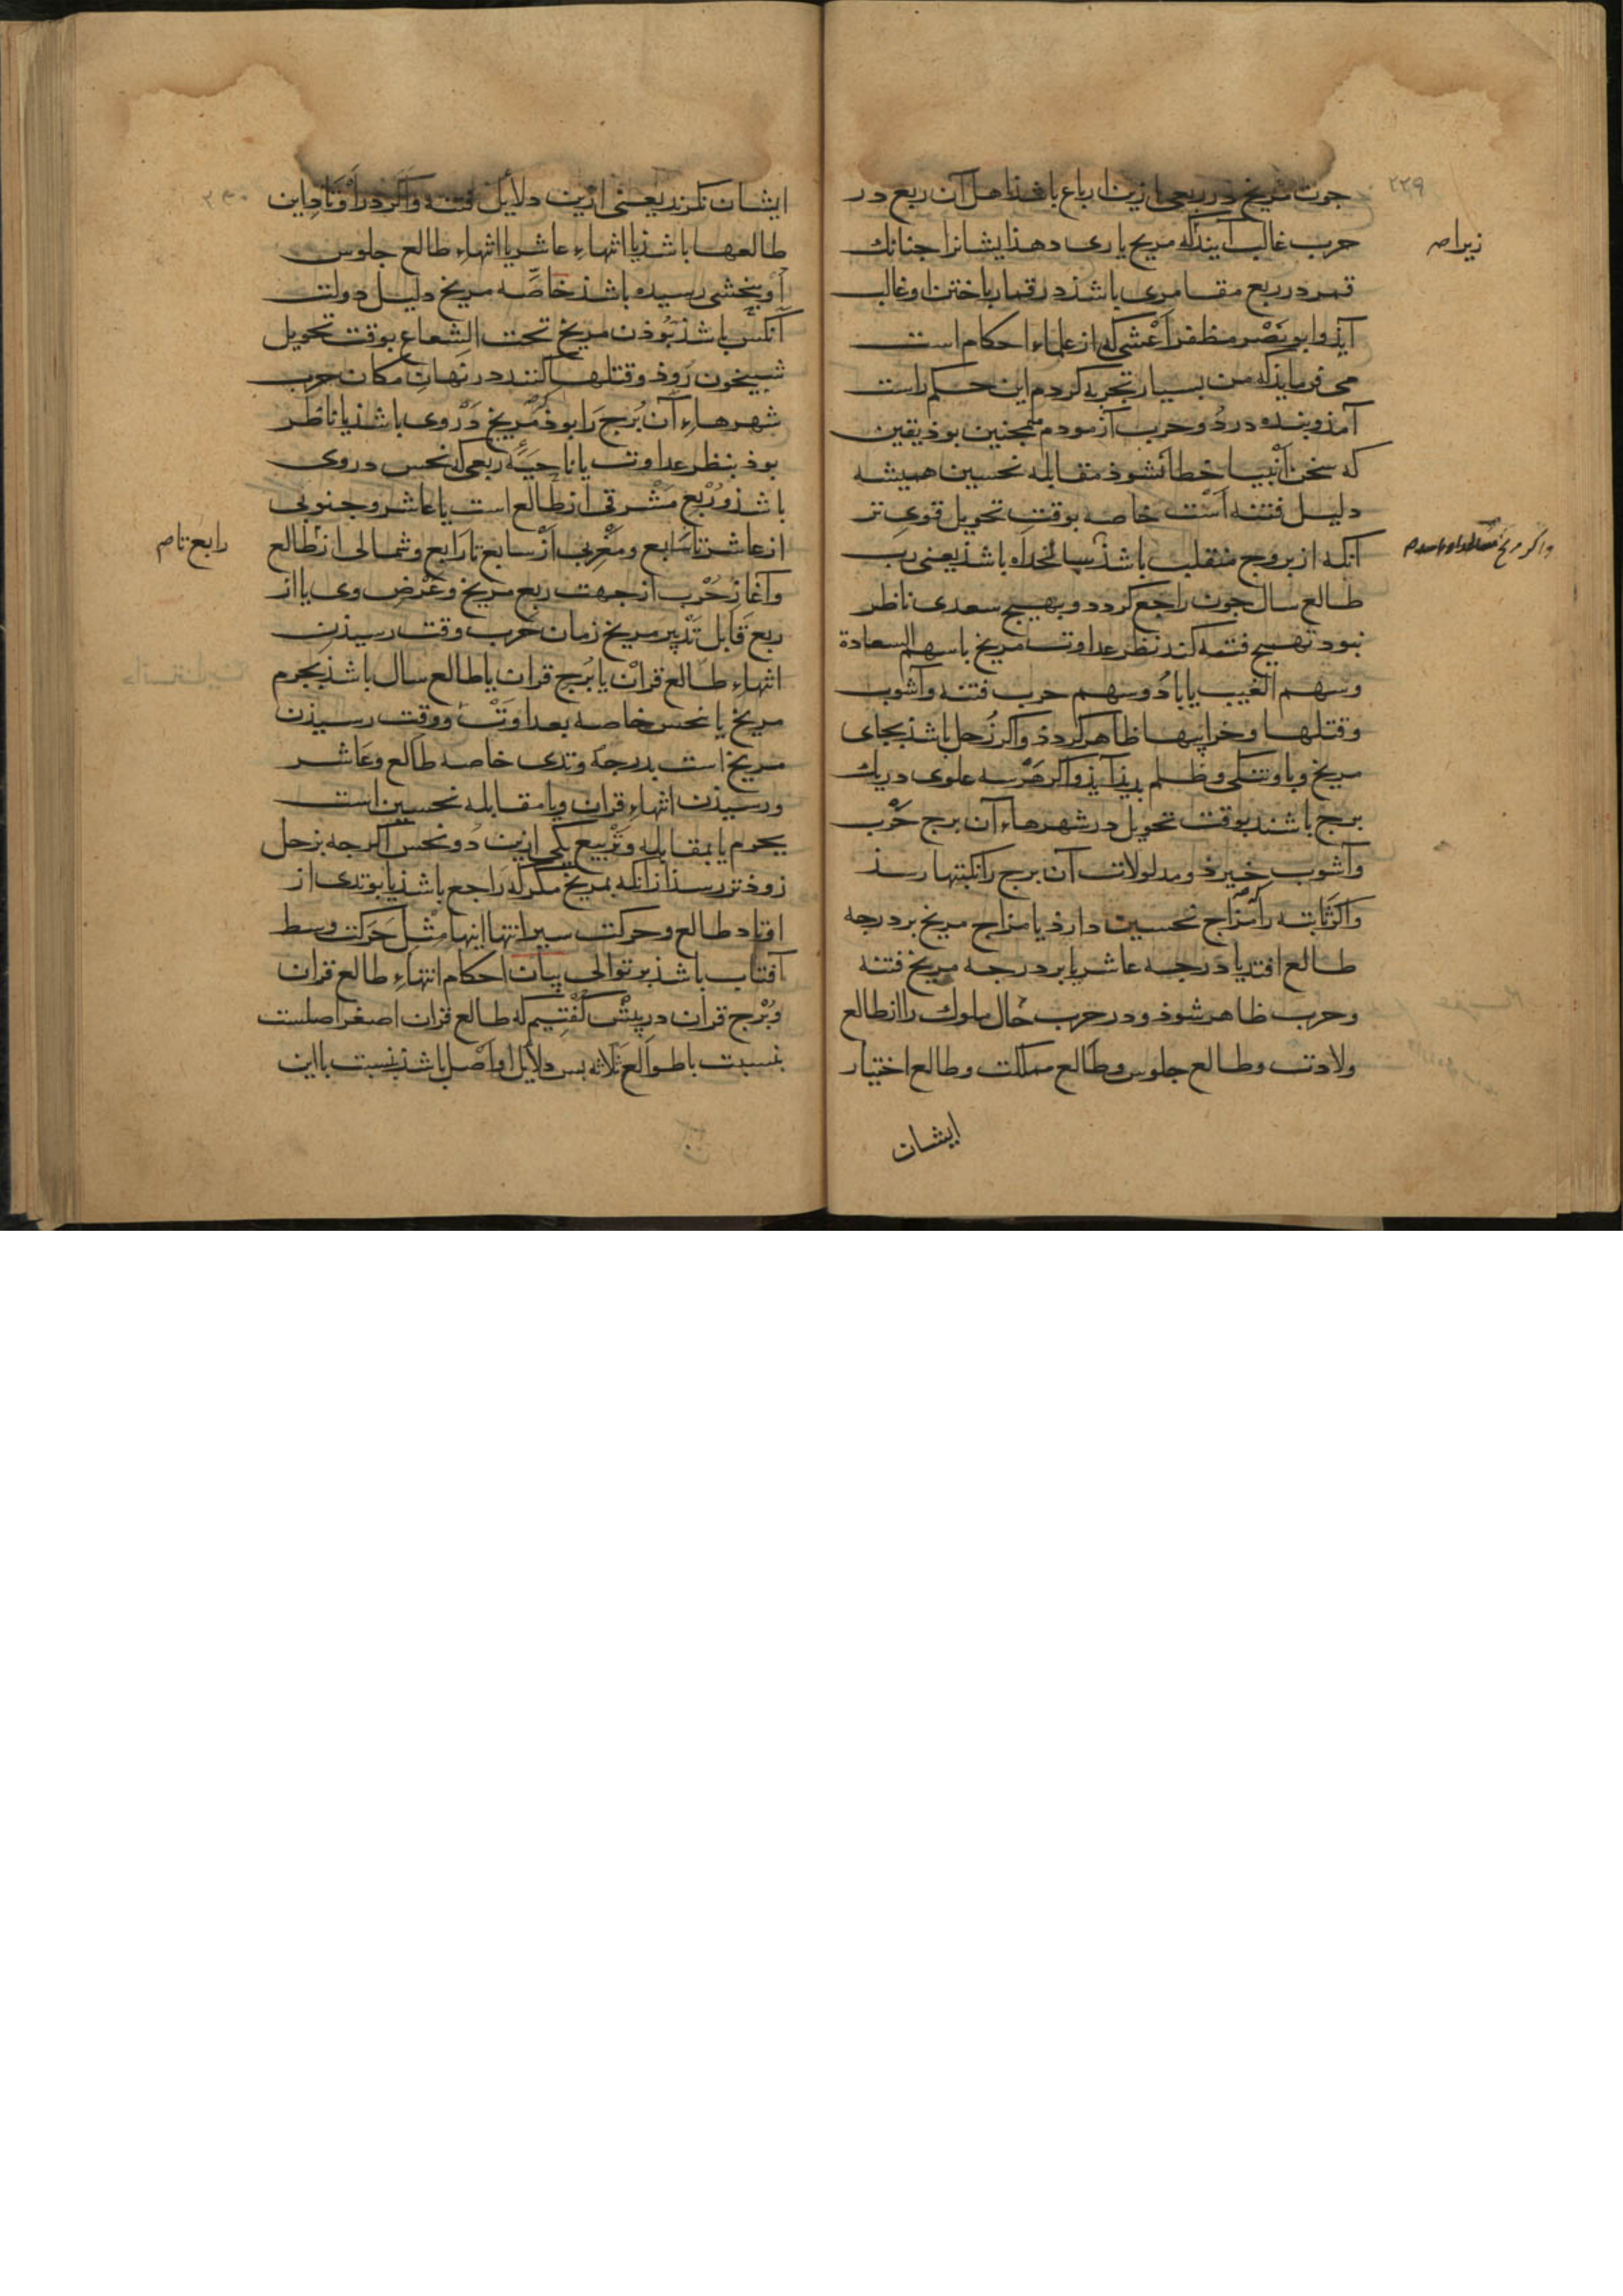 ۲۲۹
جون مریخ در ربعی ازین ارباع باشذ اهل آن ربع در
حرب غالب آیند که مریخ یاری دهذ ایشانرا جنانك
زیرا صح
قمر در ربع مقامری باشذ در قمار باختن او غالب
آیذ و ابو نصر مظفر اعشی که از علماء احکام است
می فرمایذ که من بسیار تجربه کردم این حکم راست
آمذ و بنده در دو حرب آزمودم همجنین بوذ یقین
که سخن انبیا خطا نشوذ مقابله نحسین همیشه
دلیل فتنه است خاصه بوقت تحویل قوی تر
آنکه از بروج منقلب باشذ سالخداه باشذ یعنی رب
واکر مریخ
طالع سال جون راجع کردد و بهیج سعدی ناظر
نبود تهییج فتنه کند نظر عداوت مریخ با سهم السعادة
وسهم الغیب یا باد و سهم حرب فتنه و آشوب
وقتلها و خرابیها ظاهر کردذ واکر زحل باشذ بجای
مریخ وبا وتنکی وظلم بدیذ آیذ واکر هر سه علوی در یك
برج باشند بوقت تحویل در شهرهاء آن برج حرب
وآشوب خیزد و مدلولات آن برج را نکبتها رسذ
واکر ثابته را مزاج نحسین دارذ یا مزاج مریخ بر درجه
طالع افتد یا درجه عاشر یا بر درجه مریخ فتنه
وحرب ظاهر شوذ و در حرب حال ملوك را از طالع
ولادت وطالع جلوس وطالع مملکت وطالع اختیار
ایشان
۲۳۰
ایشان نکرند یعنی ازین دلایل فتنه واکر در اوتاد این
طالعها باشذ یا انتهاء عاشر یا انتهاء طالع جلوس
او بنحسی رسیده باشذ خاصه مریخ دلیل دولت
آنکس باشذ بوذن مریخ تحت الشعاع بوقت تحویل
شبیخون روذ وقتلها کنند در نهان مکان حرب
شهرهاء آن برج را بوذ که مریخ در وی باشذ یا ناظر
بوذ بنظر عداوت یا ناحیه ربعی که نحس در وی
باشذ و ربع مشرقی از طالع است یا عاشر و جنوبی
از عاشر تا سابع و مغربی از سابع تا رابع و شمالی از طالع
رابع تا صح
وآغاز حرب از جهت ربع مریخ و عرض وی یا از
ربع قابل تدبیر مریخ زمان حرب وقت رسیذن
انتهاء طالع قران یا برج قران یا طالع سال باشذ بجرم
مریخ یا نحس خاصه بعداوت ووقت رسیذن
مریخ است بدرجه وتدی خاصه طالع و عاشر
ورسیذن انتهاء قران ویا مقابله نحسین است
بجرم یا بمقابله و تربیع یکی ازین دو نحس اکرجه بزحل
زوذتر رسذ از آنکه بمریخ مکر که راجع باشذ یا بوتدی از
اوتاد طالع و حرکت سیر انتهاء اینها مثل حرکت وسط
آفتاب باشذ بر توالی بیان احکام انتهاء طالع قران
وبرج قران در پیش کفتیم که طالع قران اصغر اصلست
بنسبت با طوالع ثلاثه بس دلایل او اصل باشذ بنسبت با این